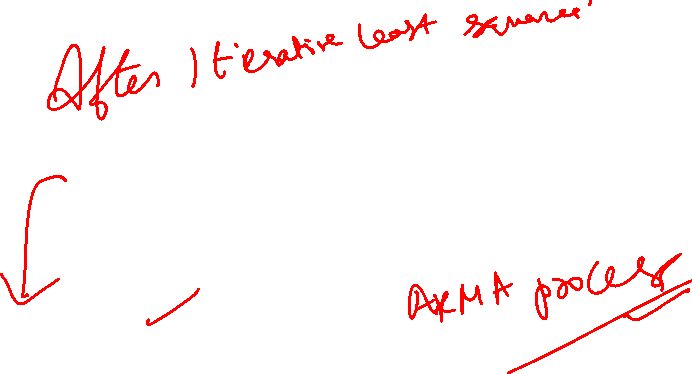 After Iterative least squares
ARMA process